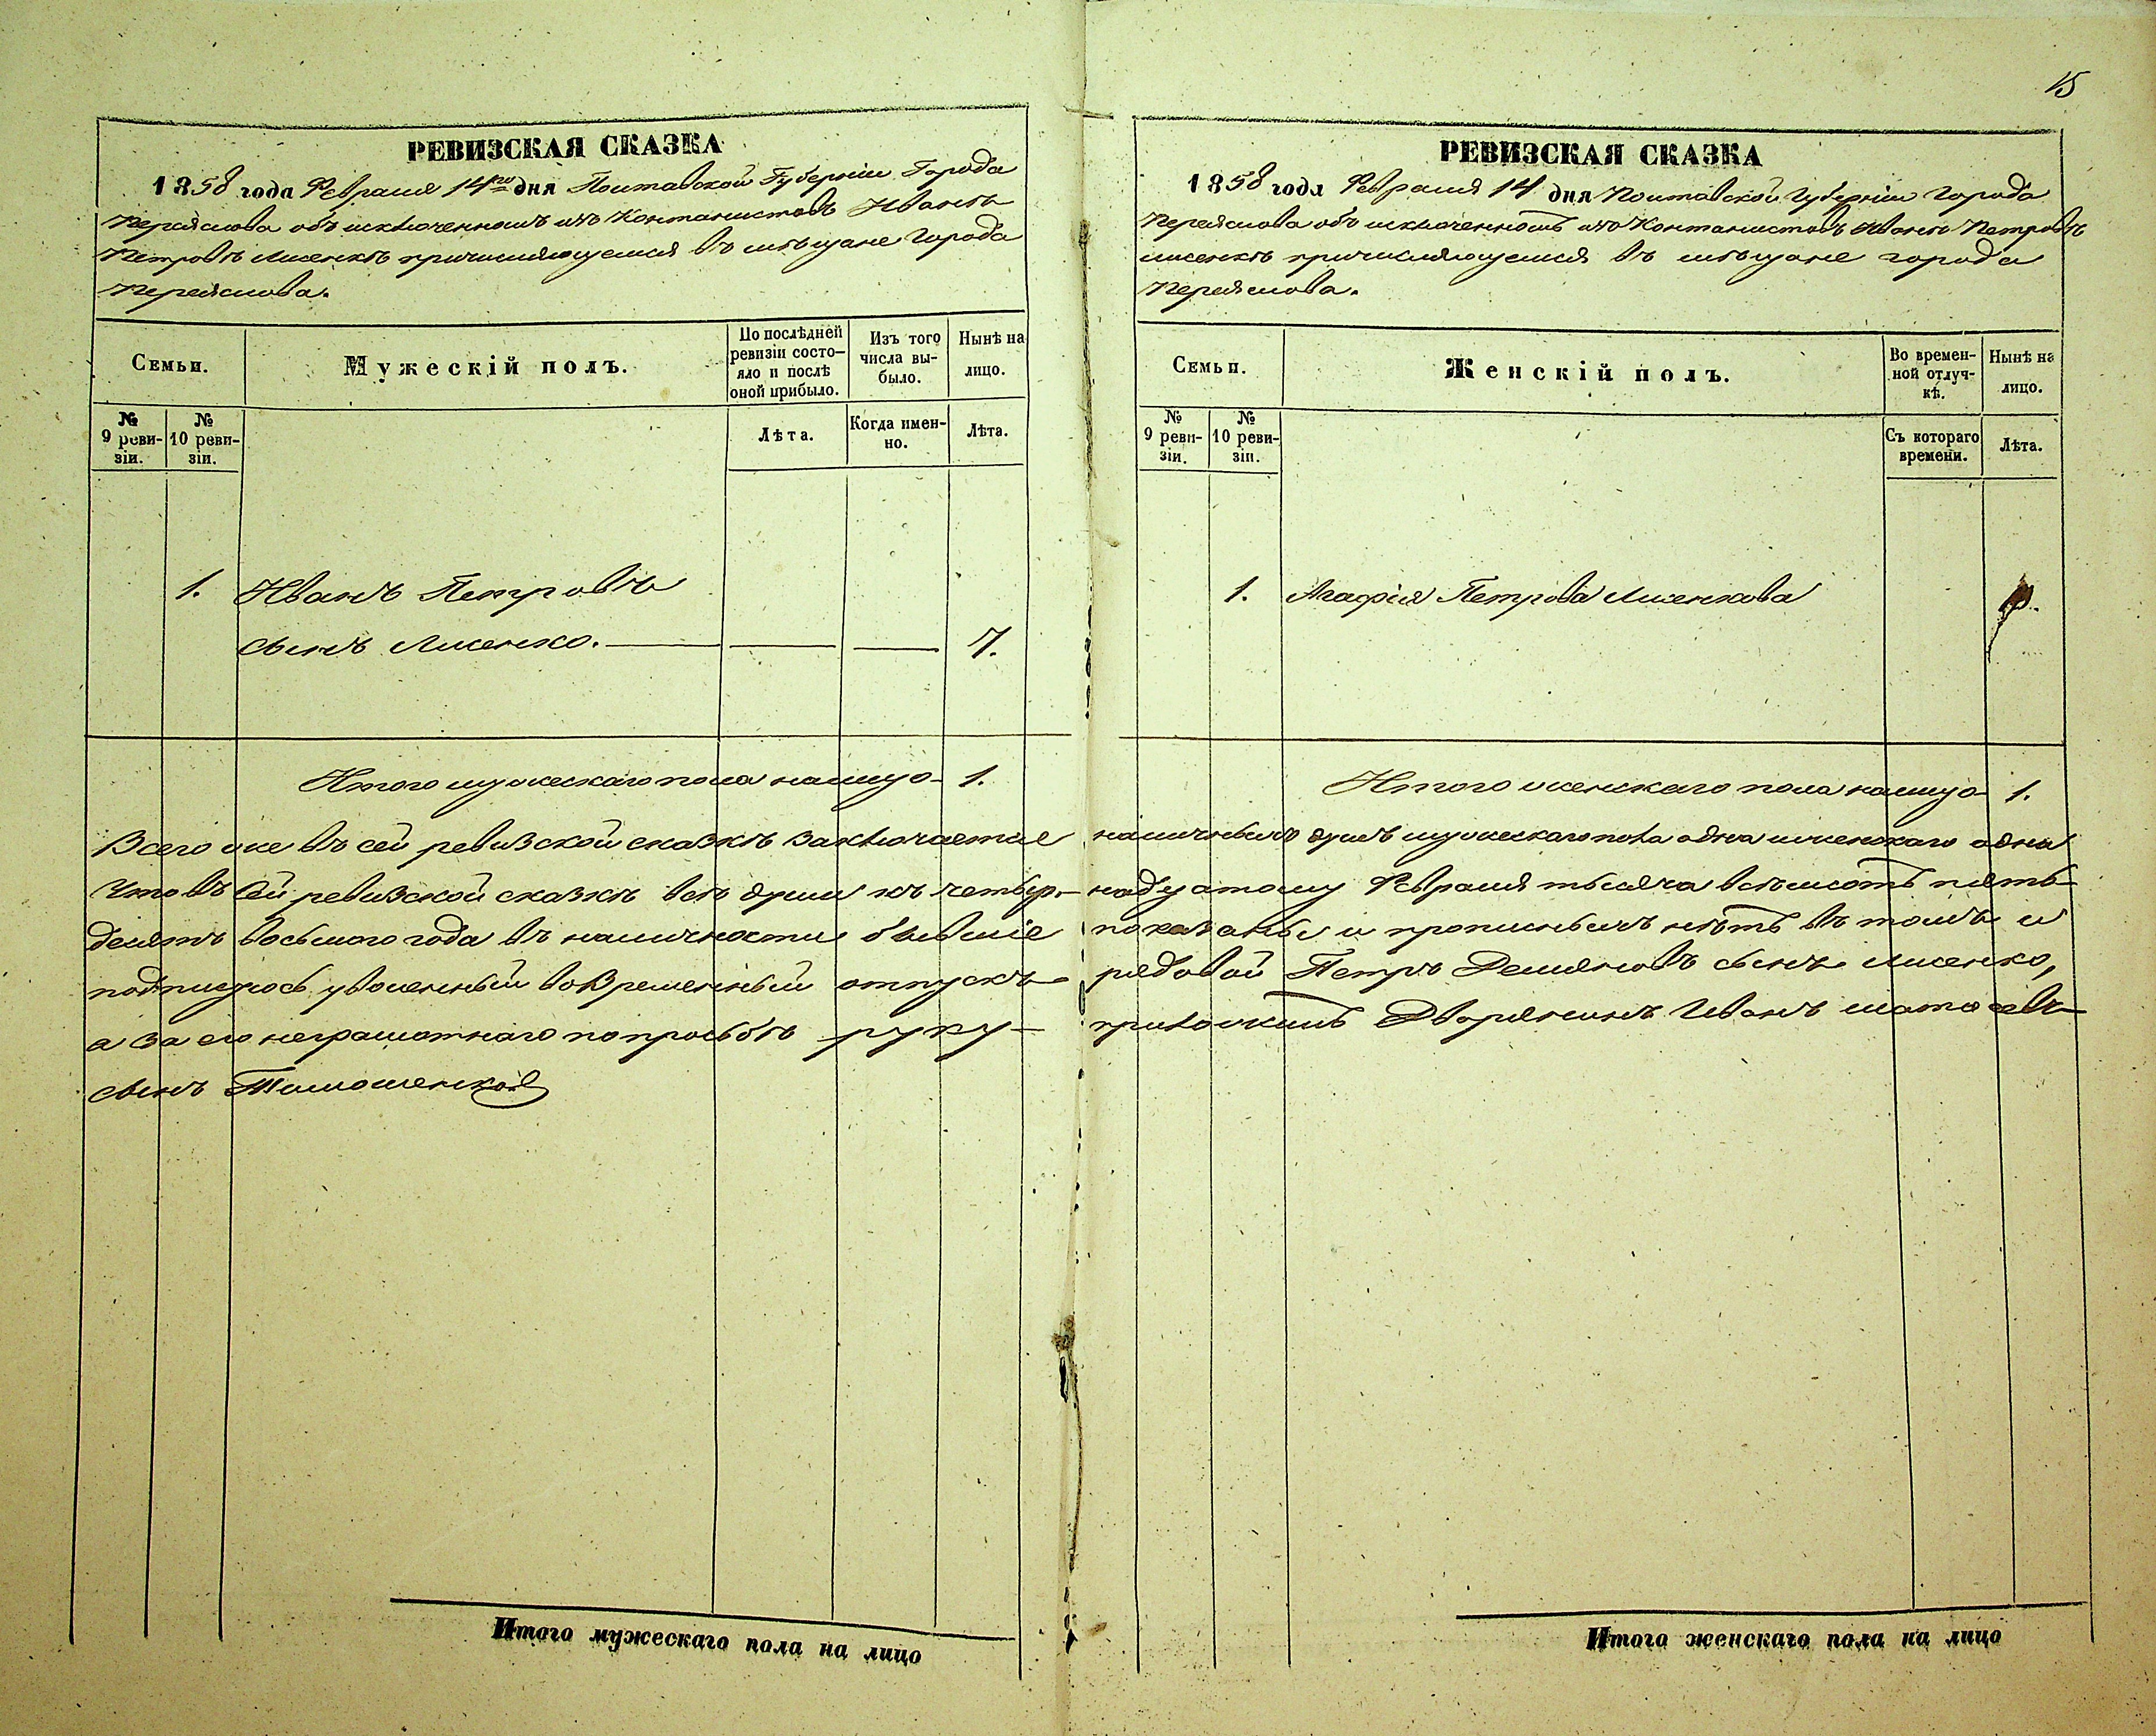 15
РЕВИЗСКАЯ СКАЗКА
1858 года Февраля 14го дня Полтавской Губерніи Города
Переяслова объ исключенномъ изъ Контанистовъ Иванѣ
Петровѣ Лисенкѣ причисляющемся въ мѣщане Города
Переяслова.
Семьи.
Мужескій полъ.
По послѣдней
ревизіи состо-
яло и послѣ
оной прибыло.
Изъ того
числа вы-
было.
Нынѣ на
лицо.
№
9 реви-
зіи.
№
10 реви-
зіи.
Лѣта.
Когда имен-
но.
Лѣта.
1. Иванъ Петровъ
сынъ Лисенко. 7.
Итого мужескаго пола налицо 1.
Всего же въ сей ревизской сказкѣ заключается
Что въ сей ревизской сказкѣ всѣ души къ четыр-
десятъ восьмого года въ наличности бывшіе
подписуюсь уволенный во временный отпускъ
а за его неграмотнаго по просьбѣ руку
сынъ Тимошенко
Итого мужескаго пола на лицо
РЕВИЗСКАЯ СКАЗКА
1858 года Февраля 14 дня Полтавской Губерніи Города
Переяслова объ исключенномъ изъ Контанистовъ Иванѣ Петровѣ
Лисенкѣ причисляющемся въ мѣщане города
Переяслова.
Семьи.
Женскій полъ.
Во времен-
ной отлуч-
кѣ.
Нынѣ на
лицо.
№
9 реви-
зіи.
№
10 реви-
зіи.
Съ котораго
времени.
Лѣта.
1. Агафія Петрова Лисенкова
Итого женскаго пола налицо 1.
наличныхъ душъ мужескаго пола одна и женскаго одна
надцатому Февраля тысяча восемьсотъ пять
показаны и прописныхъ нѣтъ въ томъ и
рядовой Петръ Демяновъ сынъ Лисенко,
приложилъ Дворянинъ Иванъ
Итого женскаго пола на лицо